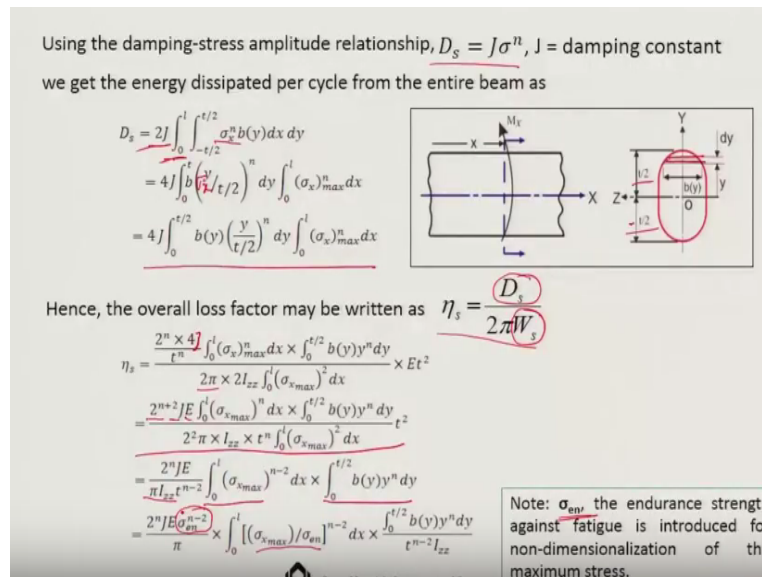 Using the damping-stress amplitude relationship, D_s = Jσ^n, J = damping constant
we get the energy dissipated per cycle from the entire beam as
D_s = 2J ∫_0^l ∫_{-t/2}^{t/2} σ_x^n b(y)dx dy
= 4J ∫_0^t b(y/t/2)^n dy ∫_0^l (σ_x)^n_max dx
= 4J ∫_0^{t/2} b(y) (y/(t/2))^n dy ∫_0^l (σ_x)^n_max dx
M_x
x
X
Y
dy
t/2
b(y)
y
Z
O
- t/2
Hence, the overall loss factor may be written as η_s = D_s / 2πW_s
η_s = (2^n × 4J / t^n ∫_0^l (σ_x)^n_max dx × ∫_0^{t/2} b(y)y^n dy) / (2π × 2I_zz ∫_0^l (σ_xmax)^2 dx) × Et^2
= (2^{n+2}JE ∫_0^l (σ_xmax)^n dx × ∫_0^{t/2} b(y)y^n dy) / (2^2 π × I_zz × t^n ∫_0^l (σ_xmax)^2 dx) t^2
= 2^n JE / (πI_zz t^{n-2}) ∫_0^l (σ_xmax)^{n-2} dx × ∫_0^{t/2} b(y)y^n dy
= 2^n JEσ_en^{n-2} / π × ∫_0^l [(σ_xmax)/σ_en]^{n-2} dx × ∫_0^{t/2} b(y)y^n dy / (t^{n-2} I_zz)
Note: σ_en, the endurance strengt
against fatigue is introduced fo
non-dimensionalization of th
maximum stress.